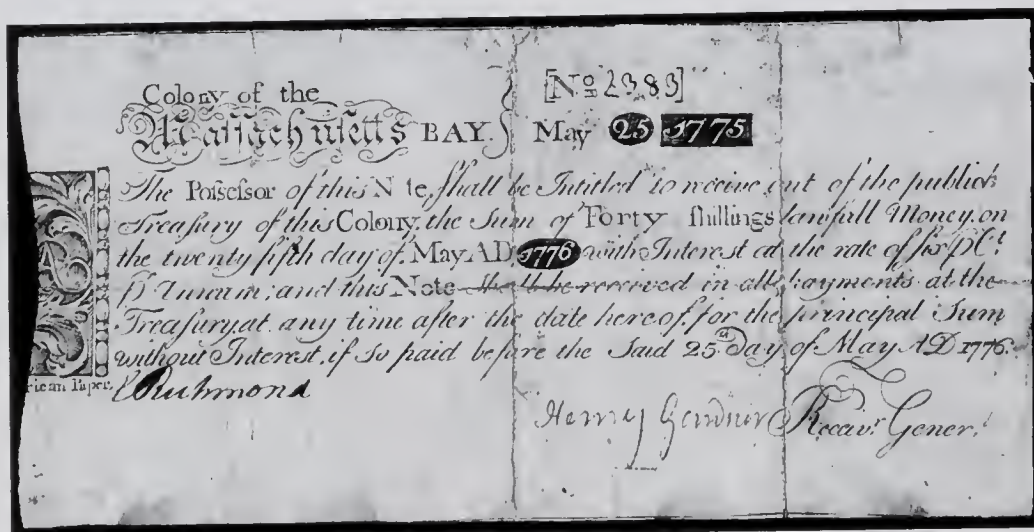 Colony of the
[No 2383]
Massachusetts BAY.
May 25 1775
The Possessor of this N te, shall be Intitled to receive out of the publick
Treasury of this Colony, the Sum of Forty shillings lawfull Money, on
the twenty fifth day of May AD 1776 with Interest at the rate of six p Ct
p Annum; and this Note shall be received in all payments at the
Treasury, at any time after the date hereof, for the principal Sum
without Interest, if so paid before the Said 25th Day of May AD 1776.
rican Paper.
Richmond
Henry Gardner Receivr Generl